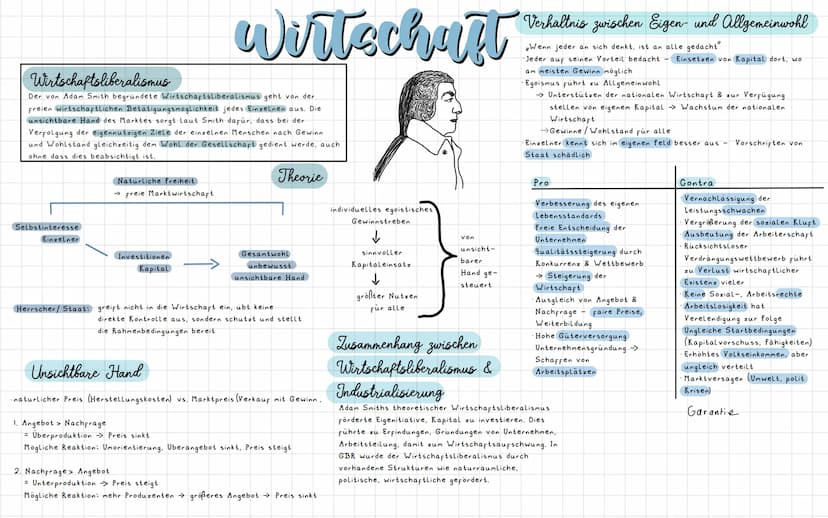 Wirtschaft
Wirtschaftsliberalismus
Der von Adam Smith begründete Wirtschaftsliberalismus geht von der
freien wirtschaftlichen Betätigungsmöglichkeit jedes Einzelnen aus. Die
unsichtbare Hand des Marktes sorgt laut Smith dafür, dass bei der
Verfolgung der eigennützigen Ziele der einzelnen Menschen nach Gewinn
und Wohlstand gleichzeitig dem Wohl der Gesellschaft gedient werde, auch
ohne dass dies beabsichtigt ist.
Theorie
Natürliche Freiheit
→ freie Marktwirtschaft
Selbstinteresse
Einzelner
Investitionen
Kapital
Gesamtwohl
unbewusst
unsichtbare Hand
Herrscher/Staat: greift nicht in die Wirtschaft ein, übt keine
direkte Kontrolle aus, sondern schützt und stellt
die Rahmenbedingungen bereit
Unsichtbare Hand
natürlicher Preis (Herstellungskosten) vs. Marktpreis (Verkauf mit Gewinn.
1. Angebot > Nachfrage
= Überproduktion → Preis sinkt
Mögliche Reaktion: Umorientierung, Überangebot sinkt, Preis steigt
2. Nachfrage > Angebot
= Unterproduktion → Preis steigt
Mögliche Reaktion: mehr Produzenten → größeres Angebot → Preis sinkt
individuelles egoistisches
Gewinnstreben
↓
sinnvoller
Kapitaleinsatz
↓
größter Nutzen
für alle
von
unsicht-
barer
Hand ge-
steuert
Zusammenhang zwischen
Wirtschaftsliberalismus &
Industrialisierung
Adam Smiths theoretischer Wirtschaftsliberalismus
förderte Eigenitiative, Kapital zu investieren. Dies
führte zu Erfindungen, Gründungen von Unternehmen,
Arbeitsteilung, damit zum Wirtschaftsaufschwung. In
GBR wurde der Wirtschaftsliberalismus durch
vorhandene Strukturen wie naturräumliche,
politische, wirtschaftliche gefördert.
Verhältnis zwischen Eigen- und Allgemeinwohl
„Wenn jeder an sich denkt, ist an alle gedacht"
·Jeder auf seinen Vorteil bedacht – Einsetzen von Kapital dort, wo
am meisten Gewinn möglich
·Egoismus führt zu Allgemeinwohl
→ Unterstützen der nationalen Wirtschaft & zur Verfügung
stellen von eigenem Kapital → Wachstum der nationalen
Wirtschaft
→ Gewinne / Wohlstand für alle
Einzelner kennt sich in eigenen Feld besser aus – Vorschriften von
Staat schädlich
Pro
Verbesserung des eigenen
Lebensstandards
Freie Entscheidung der
Unternehmen
Qualitätssteigerung durch
Konkurrenz & Wettbewerb
→ Steigerung der
Wirtschaft
Ausgleich von Angebot &
Nachfrage – faire Preise,
Weiterbildung
·Hohe Güterversorgung
Unternehmensgründung →
Schaffen von
Arbeitsplätzen
Contra
·Vernachlässigung der
Leistungsschwachen
·Vergrößerung der sozialen Kluft
·Ausbeutung der Arbeiterschaft
·Rücksichtsloser
Verdrängungswettbewerb führt
zu Verlust wirtschaftlicher
Existenz vieler
·Keine Sozial-, Arbeitsrechte
·Arbeitslosigkeit hat
Verelendigung zur Folge
·Ungleiche Startbedingungen
(Kapitalvorschuss, Fähigkeiten)
·Erhöhtes Volkseinkommen, aber
ungleich verteilt
·Marktversagen (Umwelt, polit
Krisen)
Garantie